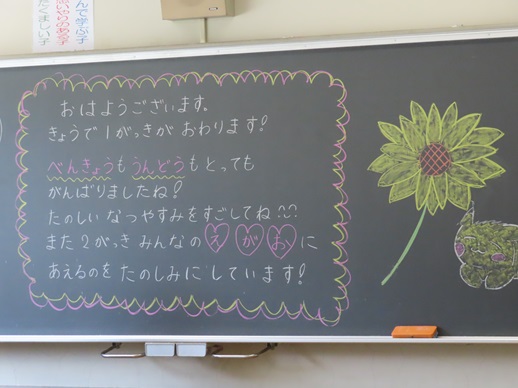 んで学ぶ子
思いやりのある子
たくましい子
おはようございます。
きょうで1がっきが おわります!
べんきょうもうんどうもとっても
がんばりましたね!
たのしい なつやすみをすごしてね
また2がっき みんなの えがおに
あえるのを たのしみに しています!